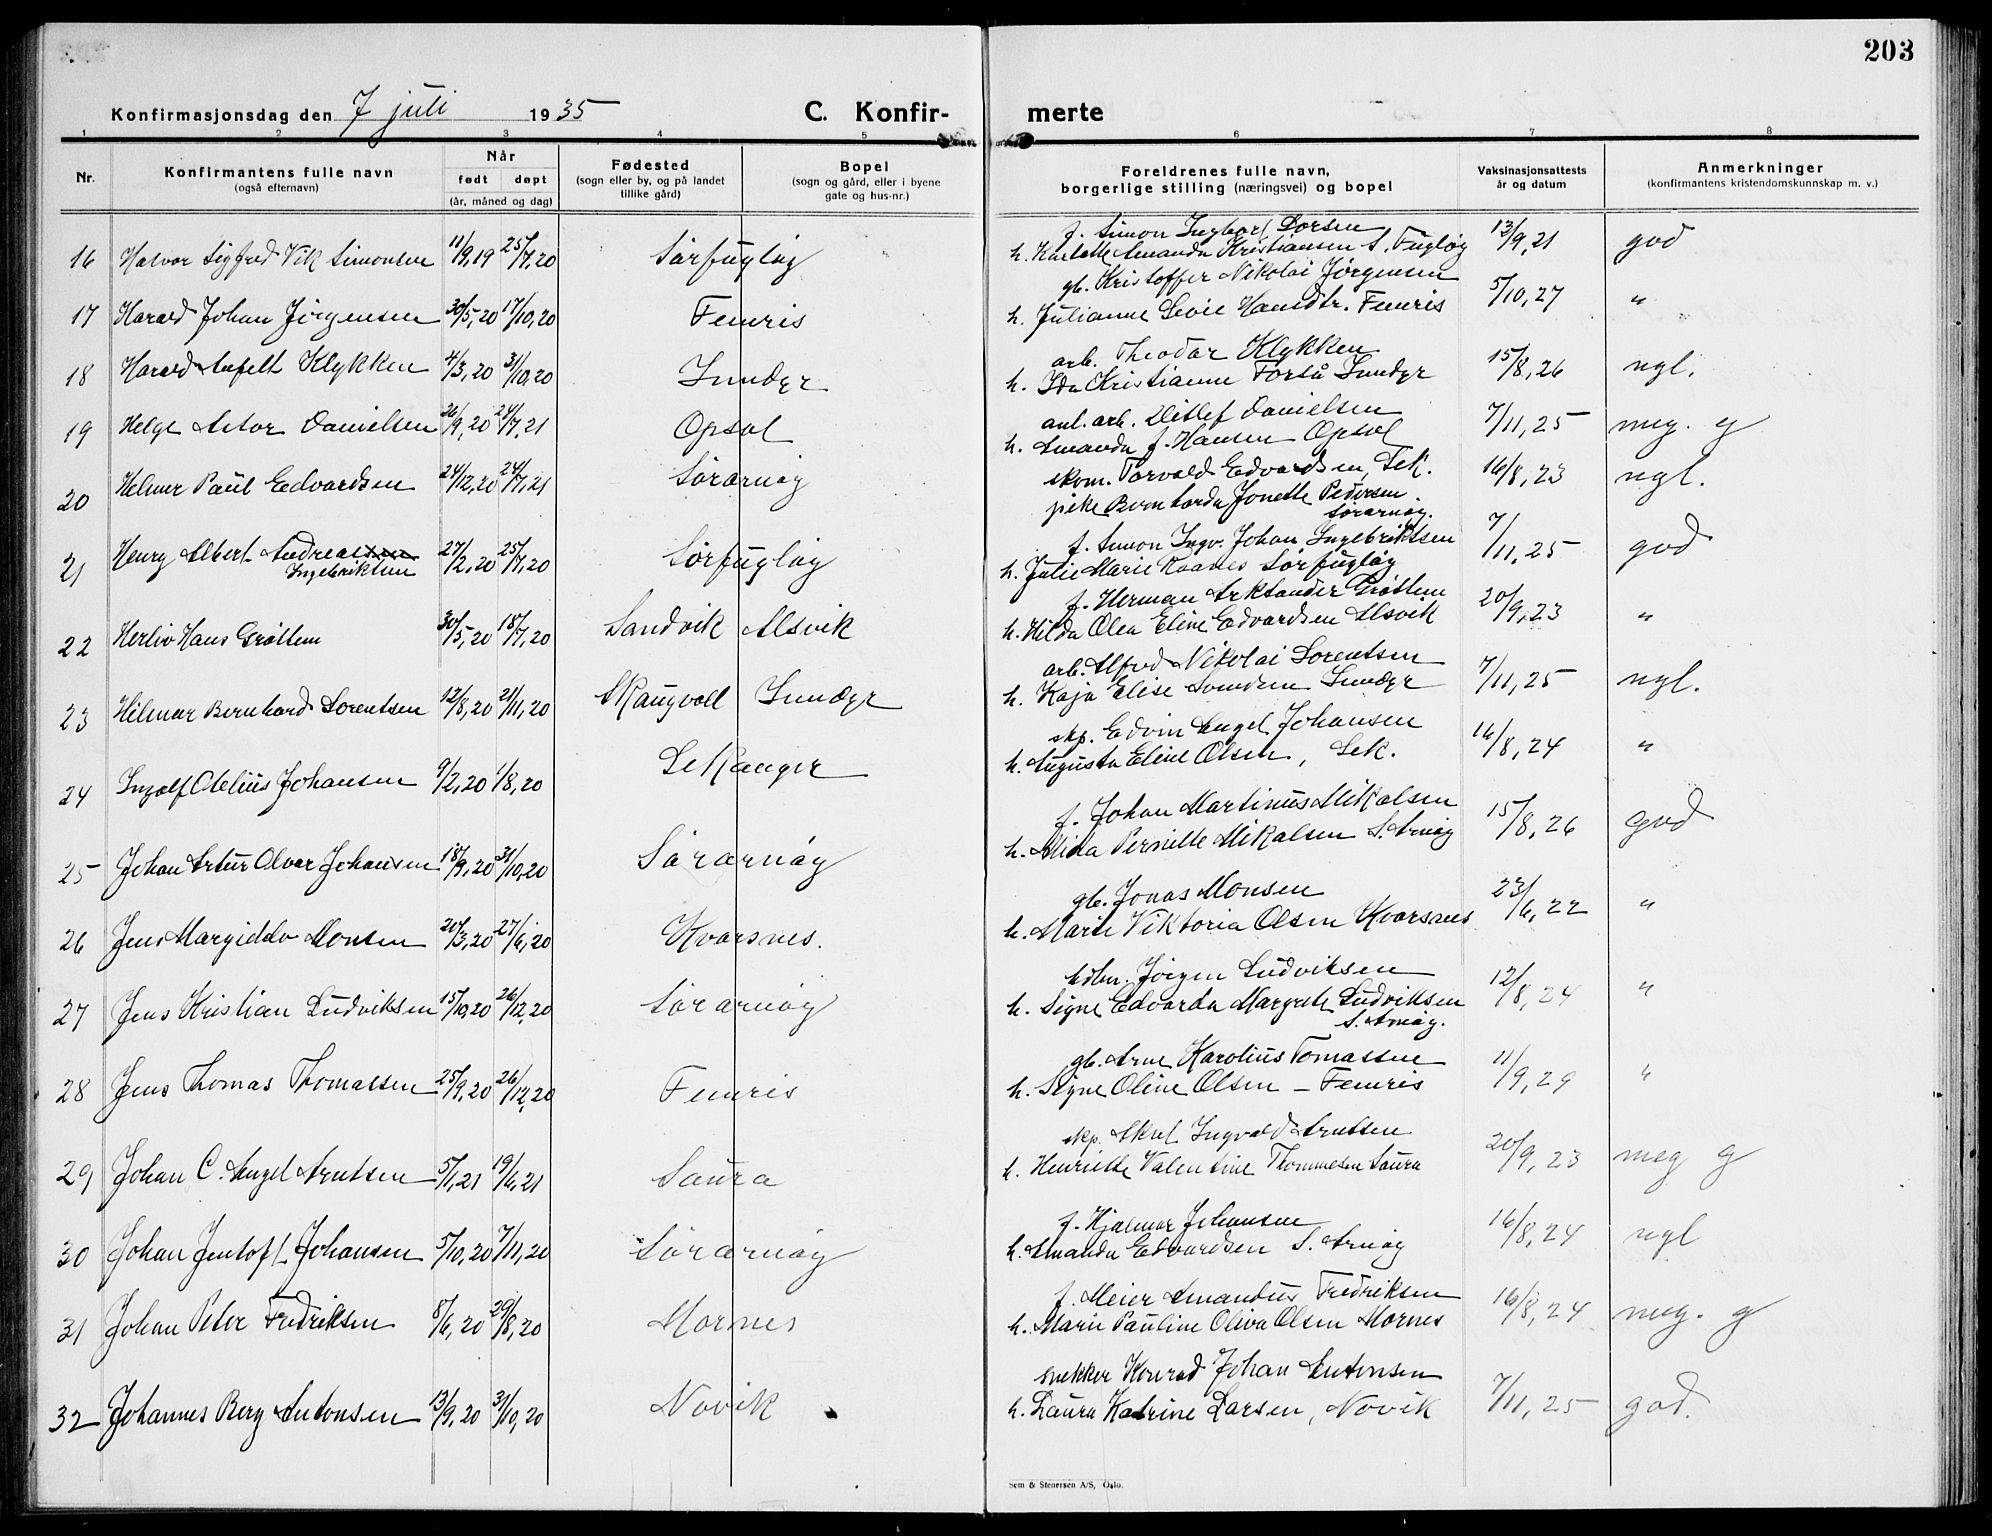 203
Konfirmasjonsdag den 7 juli 1935
C. Konfir-
merte
1 2 3 4 5 6 7 8
Nr.
Konfirmantens fulle navn
(også efternavn)
Når
født døpt
(år, måned og dag)
Fødested
(sogn eller by, og på landet
tillike gård)
Bopel
(sogn og gård, eller i byene
gate og hus-nr.)
Foreldrenes fulle navn,
borgerlige stilling (næringsvei) og bopel
Vaksinasjonsattests
år og datum
Anmerkninger
(konfirmantens kristendomskunnskap m. v.)
f. Simon Ingbart Larsen
16 Halvor Sigfred Vik Simonsen 11/9,19 25/7,20 Sørfugløy h. Karlotte Amanda Kristiansen S. Fugløy 13/9,21 god
gb. Kristoffer Nikolai Jørgensen
17 Harald Johan Jørgensen 30/5,20 17/10,20 Femris h. Julianne Hansdtr. Femris 5/10,27 "
arb. Theodor Klykken
18 Harald Klykken 4/3,20 31/10,20 Inndyr h. Ida Kristianne Forså Inndyr 15/8,26 ngl.
anl. arb. Ditlef Danielsen
19 Helge Astor Danielsen 26/9,20 24/7,21 Opsal h. Amanda f. Hansen Opsal 7/11,25 meg. g
skom. Torvald Edvardsen, Lek.
20 Helmer Paul Edvardsen 24/12,20 24/7,21 Sørarnøy pike Bernharda Jonette Pedersen 16/8,23 ngl.
Sørarnøy.
f. Simon Ingv. Johan Ingebriktsen
21 Henry Albert Andreassen 27/2,20 25/7,20 Sørfugløy h. Julie Marie Sørfugløy 7/11,25 god
Ingebriktsen
f. Herman Aleksander Grøttem
22 Herliv Hans Grøttem 30/5,20 18/7,20 Sandvik Alsvik h. Hilda Olea Eline Edvardsen Alsvik 20/9,23 "
arb. Alfred Nikolai Lorentsen
23 Hilmar Bernhard Lorentsen 12/8,20 21/11,20 Skaugvoll Inndyr h. Kaja Elise Inndyr 7/11,25 ngl.
skp. Edvin Angel Johansen
24 Ingolf Otelius Johansen 9/2,20 1/8,20 Lekanger h. Augusta Eline Olsen, Lek. 16/8,24 "
f. Johan Martinus Mikalsen
25 Johan Artur Olvar Johansen 18/9,20 31/10,20 Sørarnøy h. Mina Pernille Mikalsen S. Arnøy 15/8,26 god
gb. Jonas Monsen
26 Jens Margiddo Monsen 20/3,20 27/6,20 Kvarsnes. h. Marie Viktoria Olsen Kvarsnes 23/6,22 "
Jørgen Ludviksen
27 Jens Kristian Ludviksen 15/10,20 26/12,20 Sørarnøy h. Signe Edvarda Margrete Ludviksen 12/8,24 "
S. Arnøy.
gb. Arne Karolius Tomassen
28 Jens Thomas Thomassen 25/9,20 26/12,20 Femris h. Signe Oline Olsen – Femris 11/9,29 "
skp. Aksel Ingvald Arntsen
29 Johan C. Angel Arntsen 5/1,21 19/6,21 Saura h. Henriette Valentine Thommesen Saura 20/9,23 meg g
f. Hjalmar Johansen
30 Johan Jentoft Johansen 5/10,20 7/11,20 Sørarnøy h. Amanda Edvardsen S. Arnøy 16/8,24 ngl
f. Meier Amandus Fredriksen
31 Johan Peter Fredriksen 8/6,20 29/8,20 Mornes h. Marie Pauline Oliva Olsen Mornes 16/8,24 meg. g
snekker Konrad Johan Antonsen
32 Johannes Berg Antonsen 13/9,20 31/10,20 Novik h. Laura Katrine Larsen, Novik 7/11,25 god.
Sem & Stenersen A/S, Oslo.